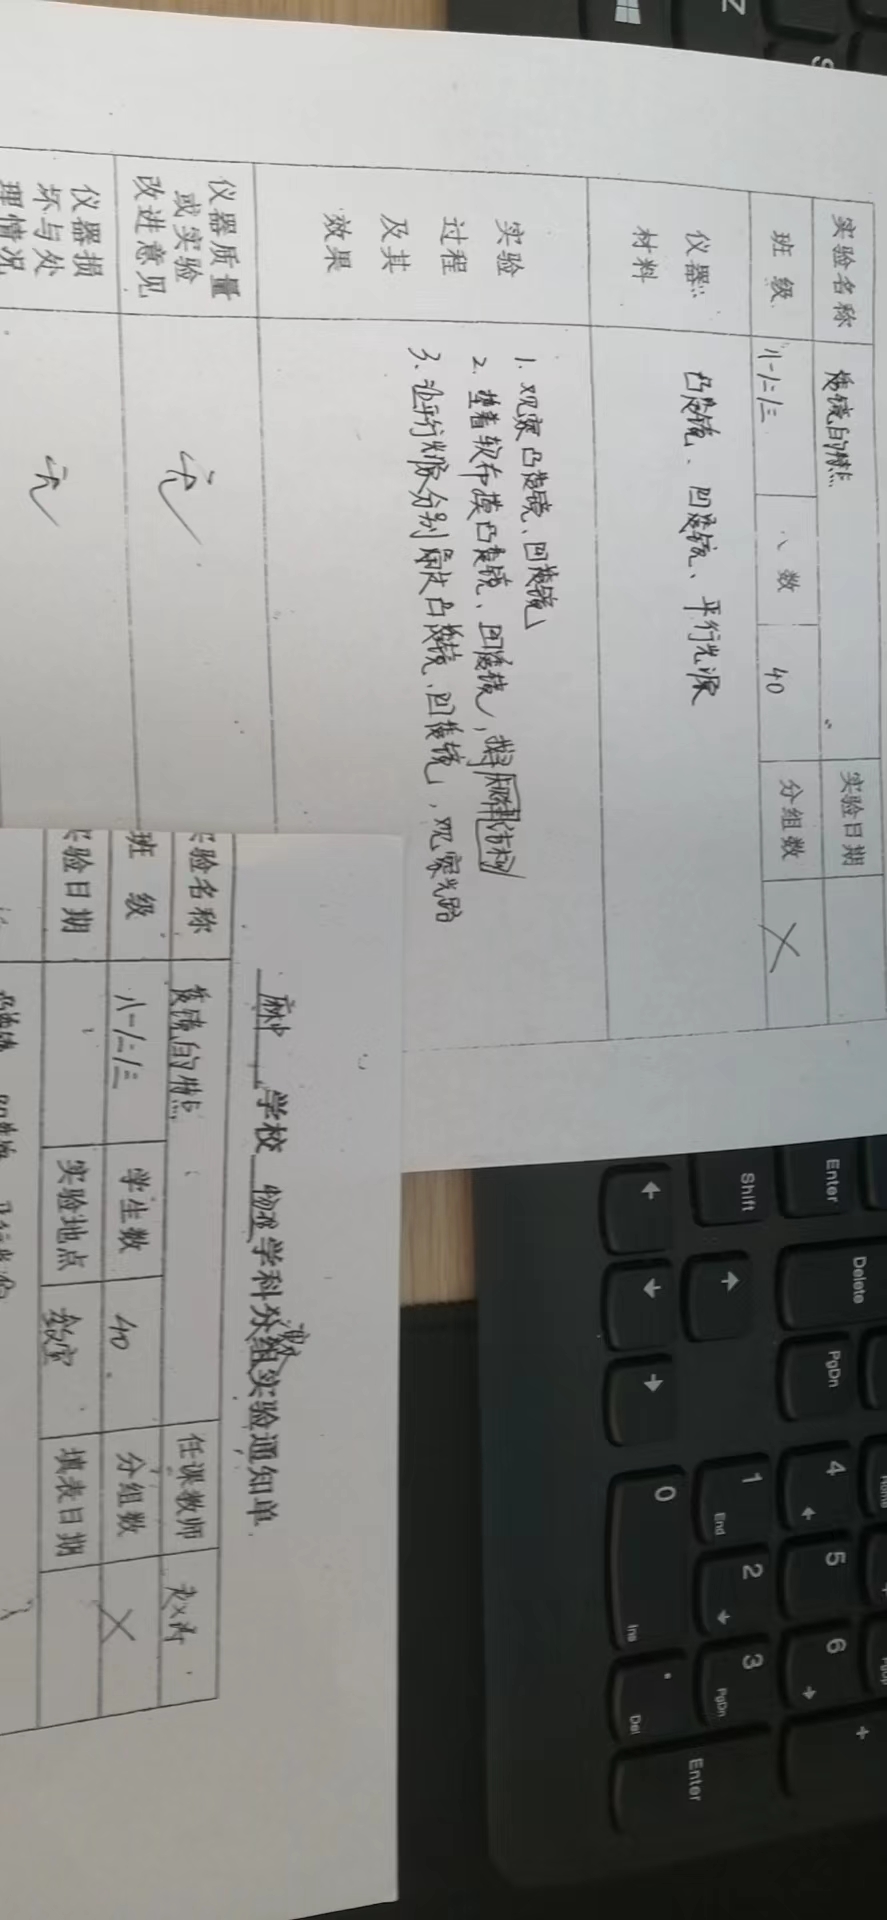 实验名称 透镜的特点 实验日期
班级 八一/二/三 人数 40 分组数 X
仪器 凸透镜、凹透镜、平行光源
材料
实验 1. 观察凸透镜、凹透镜
过程 2. 垫着软布摸凸透镜、凹透镜,
及其 3. 让平行光源分别 凸透镜、凹透镜,观察光路
效果
仪器质量
或实验 无
改进意见
仪器损
坏与处 无
理情况
学校 物理 学科分组实验通知单
演示
实验名称 透镜的特点 任课教师
班级 八一/二/三 学生数 40 分组数 X
实验日期 实验地点 教室 填表日期
Z
S
Enter
Delete
Shift
PgDn
Home
4
5
6
PgUp
+
1
End
2
3
PgDn
0
Ins
.
Del
Enter